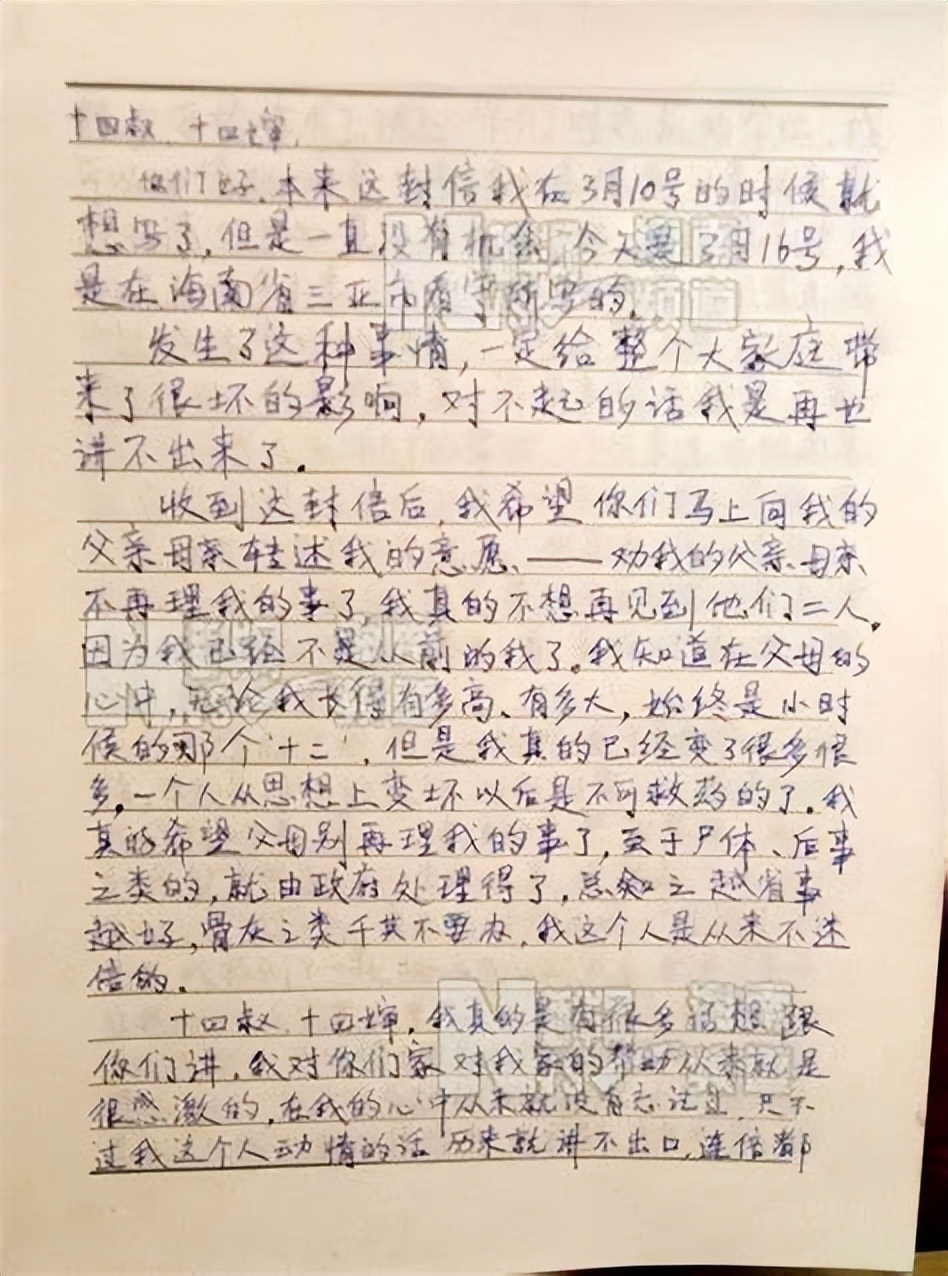 十四叔、十四婶,
你们好,本来这封信我在3月10号的时候就
想写了,但是一直没有机会,今天是3月16号,我
是在海南省三亚市看守所写的。
发生了这种事情,一定给整个大家庭带
来了很坏的影响,对不起的话我是再也
讲不出来了。
收到这封信后,我希望你们马上向我的
父亲母亲转述我的意愿、——劝我的父亲母亲
不再理我的事了,我真的不想再见到他们二人。
因为我已经不是从前的我了。我知道在父母的
心中,无论我长得有多高、有多大,始终是小时
候的那个“十二”,但是我真的已经变了很多很
多,一个人从思想上变坏以后是不可救药的了。我
真的希望父母别再理我的事了,至于尸体、后事
之类的,就由政府处理得了,总知之越省事
越好,骨灰之类千其不要办,我这个人是从来不迷
信的。
十四叔、十四婶,我真的是有很多话想跟
你们讲,我对你们家对我家的帮助从来就是
很感激的,在我的心中从来就没有忘记过,只不
过我这个人动情的话历来就讲不出口,连信都